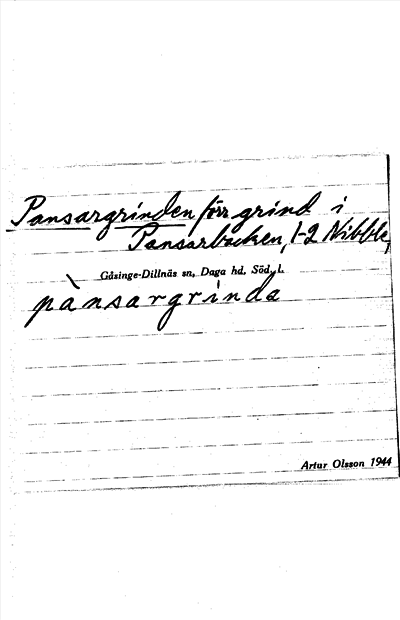 Pansargrinden förr grind i
Pansarbacken, 1-2 Nibble,
Gåsinge-Dillnäs sn, Daga hd, Söd. l.
pànsargrinda
Artur Olsson 1944